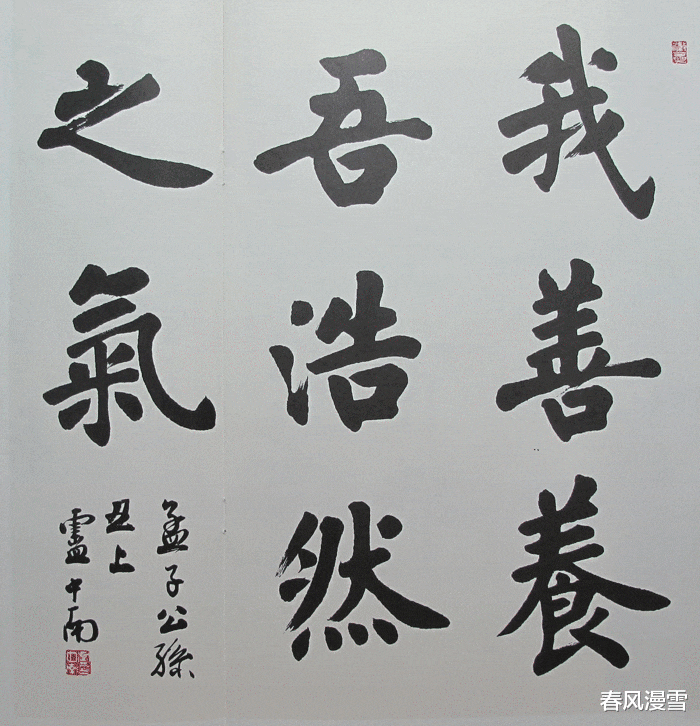 我善養
吾浩然
之氣
孟子公孫
丑上
盧中南
春风漫雪